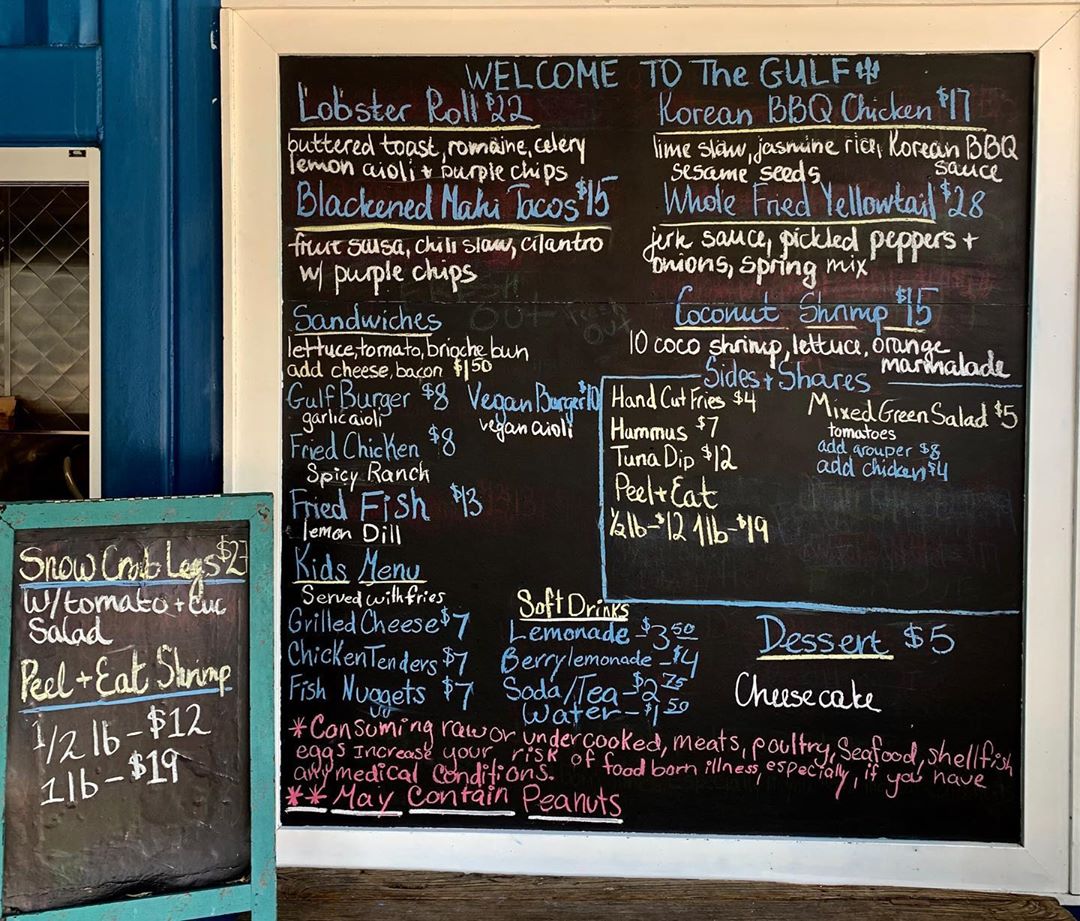 WELCOME TO The GULF
Lobster Roll $22
buttered toast, romaine, celery
lemon aioli + purple chips
Blackened Mahi Tacos $15
fruit salsa, chili slaw, cilantro
w/ purple chips
Korean BBQ Chicken $17
lime slaw, jasmine rice, Korean BBQ
sesame seeds sauce
Whole Fried Yellowtail $28
jerk sauce, pickled peppers +
onions, spring mix
Coconut Shrimp $15
10 coco shrimp, lettuce, orange
marmalade
Sandwiches
lettuce, tomato, brioche bun
add cheese, bacon $1.50
Gulf Burger $8
garlic aioli
Vegan Burger $10
vegan aioli
Fried Chicken $8
Spicy Ranch
Fried Fish $13
lemon Dill
Sides + Shares
Hand Cut Fries $4
Hummus $7
Tuna Dip $12
Peel + Eat
1/2 lb - $12 1 lb - $19
Mixed Green Salad $5
tomatoes
add grouper $8
add chicken $4
Kids Menu
Served with fries
Grilled Cheese $7
Chicken Tenders $7
Fish Nuggets $7
Soft Drinks
Lemonade - $3.50
Berry lemonade - $4
Soda/Tea - $2.75
Water - $1.50
Dessert $5
Cheesecake
*Consuming raw or undercooked, meats, poultry, Seafood, shellfish
eggs Increase your risk of food born illness, especially, if you have
any medical conditions.
** May Contain Peanuts
Snow Crab Legs
w/tomato + cuc
Salad
Peel + Eat Shrimp
1/2 lb - $12
1 lb - $19